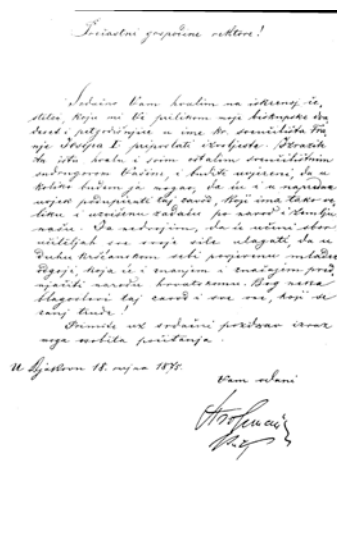 Prečastni gospodine rektore!
Srdačno Vam hvalim na iskrenoj če-
stitci, koju mi Ve prilikom moje biskupske dva-
deset i petgodišnjice u ime kr. sveučilišta Fra-
nje Josipa I pripos­lati izvoljeste. Izrazite
tu istu hvalu i svim ostalim sveučilištnim
sudrugovom Vašim, i budite uvjereni, da u
koliko budem ja mogao, da ću i u napredak
uvjek podupirati taj zavod, koji ima tako ve-
liku i uzvišenu zadaću po narod i zemlju
našu. Ja nedvojim, da će učeni sbor
učiteljah sve svoje sile ulagati, da u
duhu kršćanskom sebi povjerenu mladež
odgoji, koja će i znanjem i značajem pred-
njačiti narodu hrvatskomu. Bog neka
blagoslovi taj zavod i sve one, koji se
zanj trude!
Primite uz srdačni pozdrav izraz
moga osobita počitanja.
U Djakovu 18. rujna 1875.
Vam odani